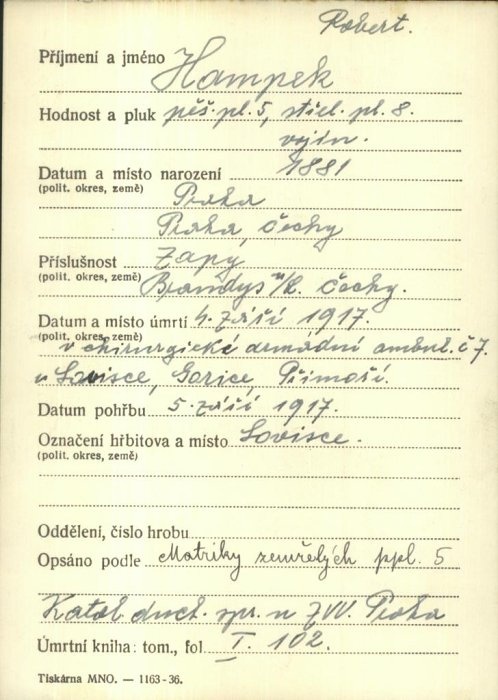 Robert.
Příjmení a jméno Hampek
Hodnost a pluk pěš. pl. 5, střel. pl. 8.
vojín.
Datum a místo narození 1881
(polit. okres, země) Praha
Praha, Čechy
Příslušnost Zapy
(polit. okres, země) Brandýs n/L. Čechy.
Datum a místo úmrtí 4. září 1917.
(polit. okres, země)
v chirurgické armádní ambul. č 7.
u Lovisce, Gorice, Přímoří.
Datum pohřbu 5. září 1917.
Označení hřbitova a místo Lovisce.
(polit. okres, země)
Oddělení, číslo hrobu
Opsáno podle Matriky zemřelých ppl. 5
Katol. duch. spr. u ZVV. Praha
Úmrtní kniha: tom., fol I. 102.
Tiskárna MNO. — 1163-36.